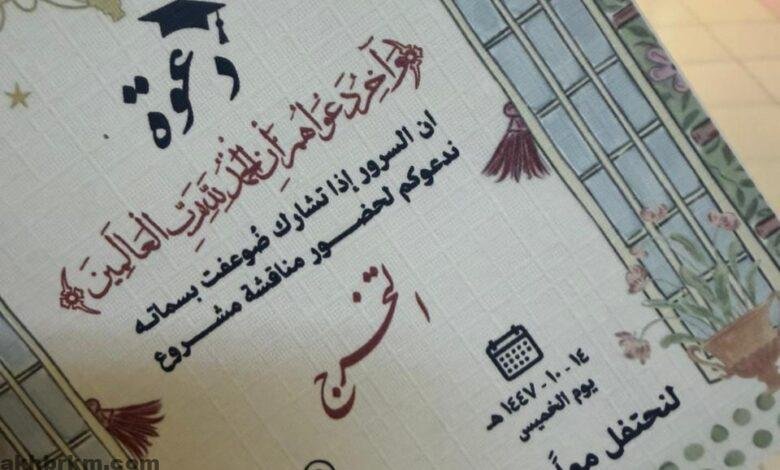 دعوة
﴿وَآخِرُ دَعْوَاهُمْ أَنِ الْحَمْدُ لِلَّهِ رَبِّ الْعَالَمِينَ﴾
ان السرور إذا تشارك ضُوعفت بسماته
ندعوكم لحضور مناقشة مشروع
التخرج
١٤ - ١٠ - ١٤٤٧ هـ
يوم الخميس
لنحتفل معاً
akhbrkm.com